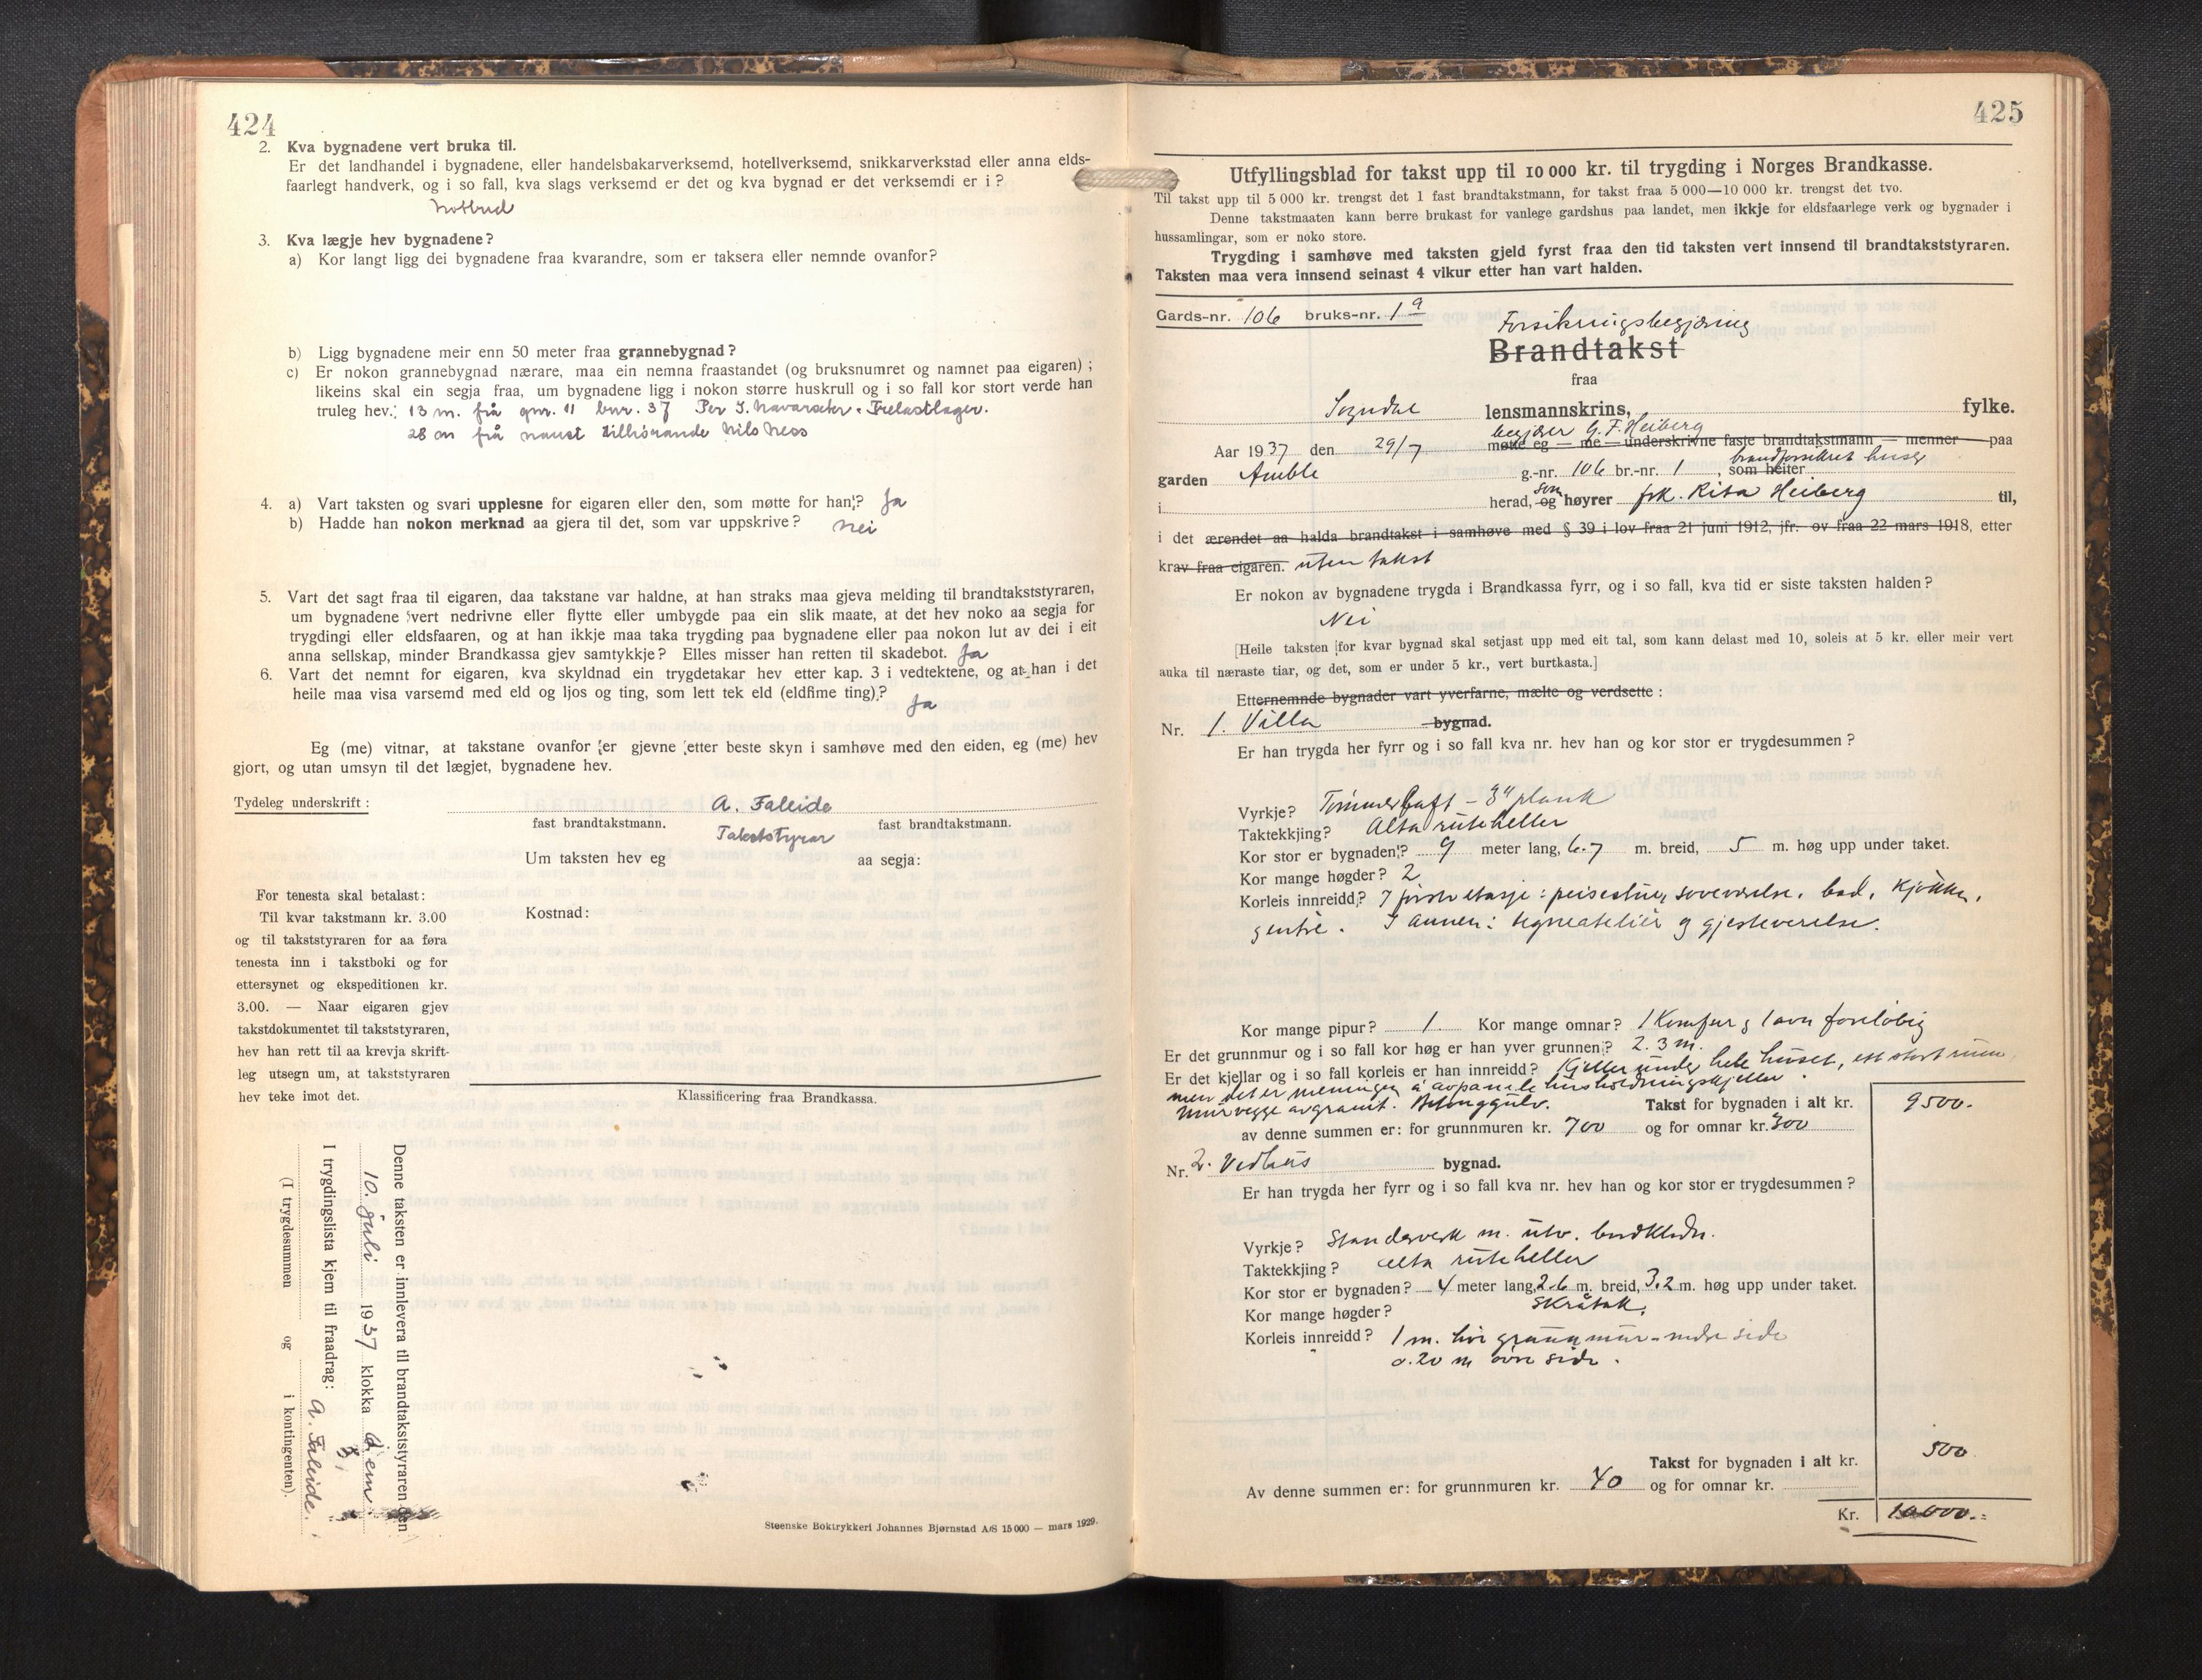 424
2. Kva bygnadene vert bruka til.
Er det landhandel i bygnadene, eller handelsbakarverksemd, hotellverksemd, snikkarverkstad eller anna elds-
faarlegt handverk, og i so fall, kva slags verksemd er det og kva bygnad er det verksemdi er i?
3. Kva lægje hev bygnadene?
a) Kor langt ligg dei bygnadene fraa kvarandre, som er taksera eller nemnde ovanfor?
b) Ligg bygnadene meir enn 50 meter fraa grannebygnad?
c) Er nokon grannebygnad nærare, maa ein nemna fraastandet (og bruksnumret og namnet paa eigaren);
likeins skal ein segja fraa, um bygnadene ligg i nokon større huskrull og i so fall kor stort verde han
truleg hev: 13 m. frå gnr. 11 bnr. 37 Per S. Navarseter. Trelastlager.
28 m frå naust tilhørande Nils Ness
4. a) Vart taksten og svari upplesne for eigaren eller den, som møtte for han? Ja
b) Hadde han nokon merknad aa gjera til det, som var uppskrive? Nei
5. Vart det sagt fraa til eigaren, daa takstane var haldne, at han straks maa gjeva melding til brandtakststyraren,
um bygnadene vert nedrivne eller flytte eller umbygde paa ein slik maate, at det hev noko aa segja for
trygdingi eller eldsfaaren, og at han ikkje maa taka trygding paa bygnadene eller paa nokon lut av dei i eit
anna sellskap, minder Brandkassa gjev samtykkje? Elles misser han retten til skadebot. Ja
6. Vart det nemnt for eigaren, kva skyldnad ein trygdetakar hev etter kap. 3 i vedtektene, og at han i det
heile maa visa varsemd med eld og ljos og ting, som lett tek eld (eldfime ting)?
Ja
Eg (me) vitnar, at takstane ovanfor er gjevne etter beste skyn i samhøve med den eiden, eg (me) hev
gjort, og utan umsyn til det lægjet, bygnadene hev.
Tydeleg underskrift: A. Faleide
fast brandtakstmann. Takststyrar fast brandtakstmann.
Um taksten hev eg aa segja:
Kostnad:
For tenesta skal betalast:
Til kvar takstmann kr. 3.00
og til takststyraren for aa føra
tenesta inn i takstboki og for
ettersynet og ekspeditionen kr.
3.00. — Naar eigaren gjev
takstdokumentet til takststyraren,
hev han rett til aa krevja skrift-
leg utsegn um, at takststyraren
hev teke imot det.
Klassificering fraa Brandkassa.
Denne taksten er innlevera til brandtakststyraren den
10. juli 1937 klokka
I trygdingslista kjem til fraadrag: A. Faleide.
(I trygdesummen og i kontingenten).
Steenske Boktrykkeri Johannes Bjørnstad A/S 15 000 — mars 1929.
425
Utfyllingsblad for takst upp til 10 000 kr. til trygding i Norges Brandkasse.
Til takst upp til 5 000 kr. trengst det 1 fast brandtakstmann, for takst fraa 5 000—10 000 kr. trengst det tvo.
Denne takstmaaten kann berre brukast for vanlege gardshus paa landet, men ikkje for eldsfaarlege verk og bygnader i
hussamlingar, som er noko store.
Trygding i samhøve med taksten gjeld fyrst fraa den tid taksten vert innsend til brandtakststyraren.
Taksten maa vera innsend seinast 4 vikur etter han vart halden.
Gards-nr. 106 bruks-nr. 1 a
Forsikringsbegjæring
Brandtakst
fraa
Sogndal lensmannskrins, fylke.
begjærer G. F. Heiberg
Aar 1937 den 29/7 møtte eg — me — underskrivne faste brandtakstmann — menner — paa
brandforsikret huse
garden Amble g.-nr. 106 br.-nr. 1, som heiter
som
i herad, og høyrer frk. Rita Heiberg til,
i det ærendet aa halda brandtakst i samhøve med § 39 i lov fraa 21 juni 1912, jfr. ov fraa 22 mars 1918, etter
krav fraa eigaren. uten takst
Er nokon av bygnadene trygda i Brandkassa fyrr, og i so fall, kva tid er siste taksten halden?
Nei
[Heile taksten for kvar bygnad skal setjast upp med eit tal, som kann delast med 10, soleis at 5 kr. eller meir vert
auka til næraste tiar, og det, som er under 5 kr., vert burtkasta.]
Etternemnde bygnader vart yverfarne, mælte og verdsette:
Nr. 1. Villa bygnad.
Er han trygda her fyrr og i so fall kva nr. hev han og kor stor er trygdesummen?
Vyrkje? Tømmerhaft - 3" plank
Taktekkjing? Alta ruteheller
Kor stor er bygnaden? 9 meter lang, 6.7 m. breid, 5 m. høg upp under taket.
Kor mange høgder? 2
Korleis innreidd? I første etasje: peisestue, soveværelse, bad, kjøkken,
g entré. I annen: tegneatelier og gjesteverelse.
Kor mange pipur? 1. Kor mange omnar? 1 Komfur g 1 ovn foreløbig
Er det grunnmur og i so fall kor høg er han yver grunnen? 2.3 m.
Er det kjellar og i so fall korleis er han innreidd? Kjeller under hele huset, ett stort rum
men det er meningen å avpanele husholdningskjeller.
Murvegge av granit. Betonggulv. Takst for bygnaden i alt kr. 9500.-
av denne summen er: for grunnmuren kr. 700 og for omnar kr. 300
Nr. 2. Vedhus bygnad.
Er han trygda her fyrr og i so fall kva nr. hev han og kor stor er trygdesummen?
Vyrkje? Standerverk m. utv. bordkledn.
Taktekkjing? Alta ruteheller
Kor stor er bygnaden? 4 meter lang, 2.6 m. breid, 3.2 m. høg upp under taket.
Kor mange høgder? Skråtak.
Korleis innreidd? 1 m. høi grunnmur - nedre side
0.20 m øvre side.
Takst for bygnaden i alt kr. 500
Av denne summen er: for grunnmuren kr. 40 og for omnar kr.
Kr. 10000.-